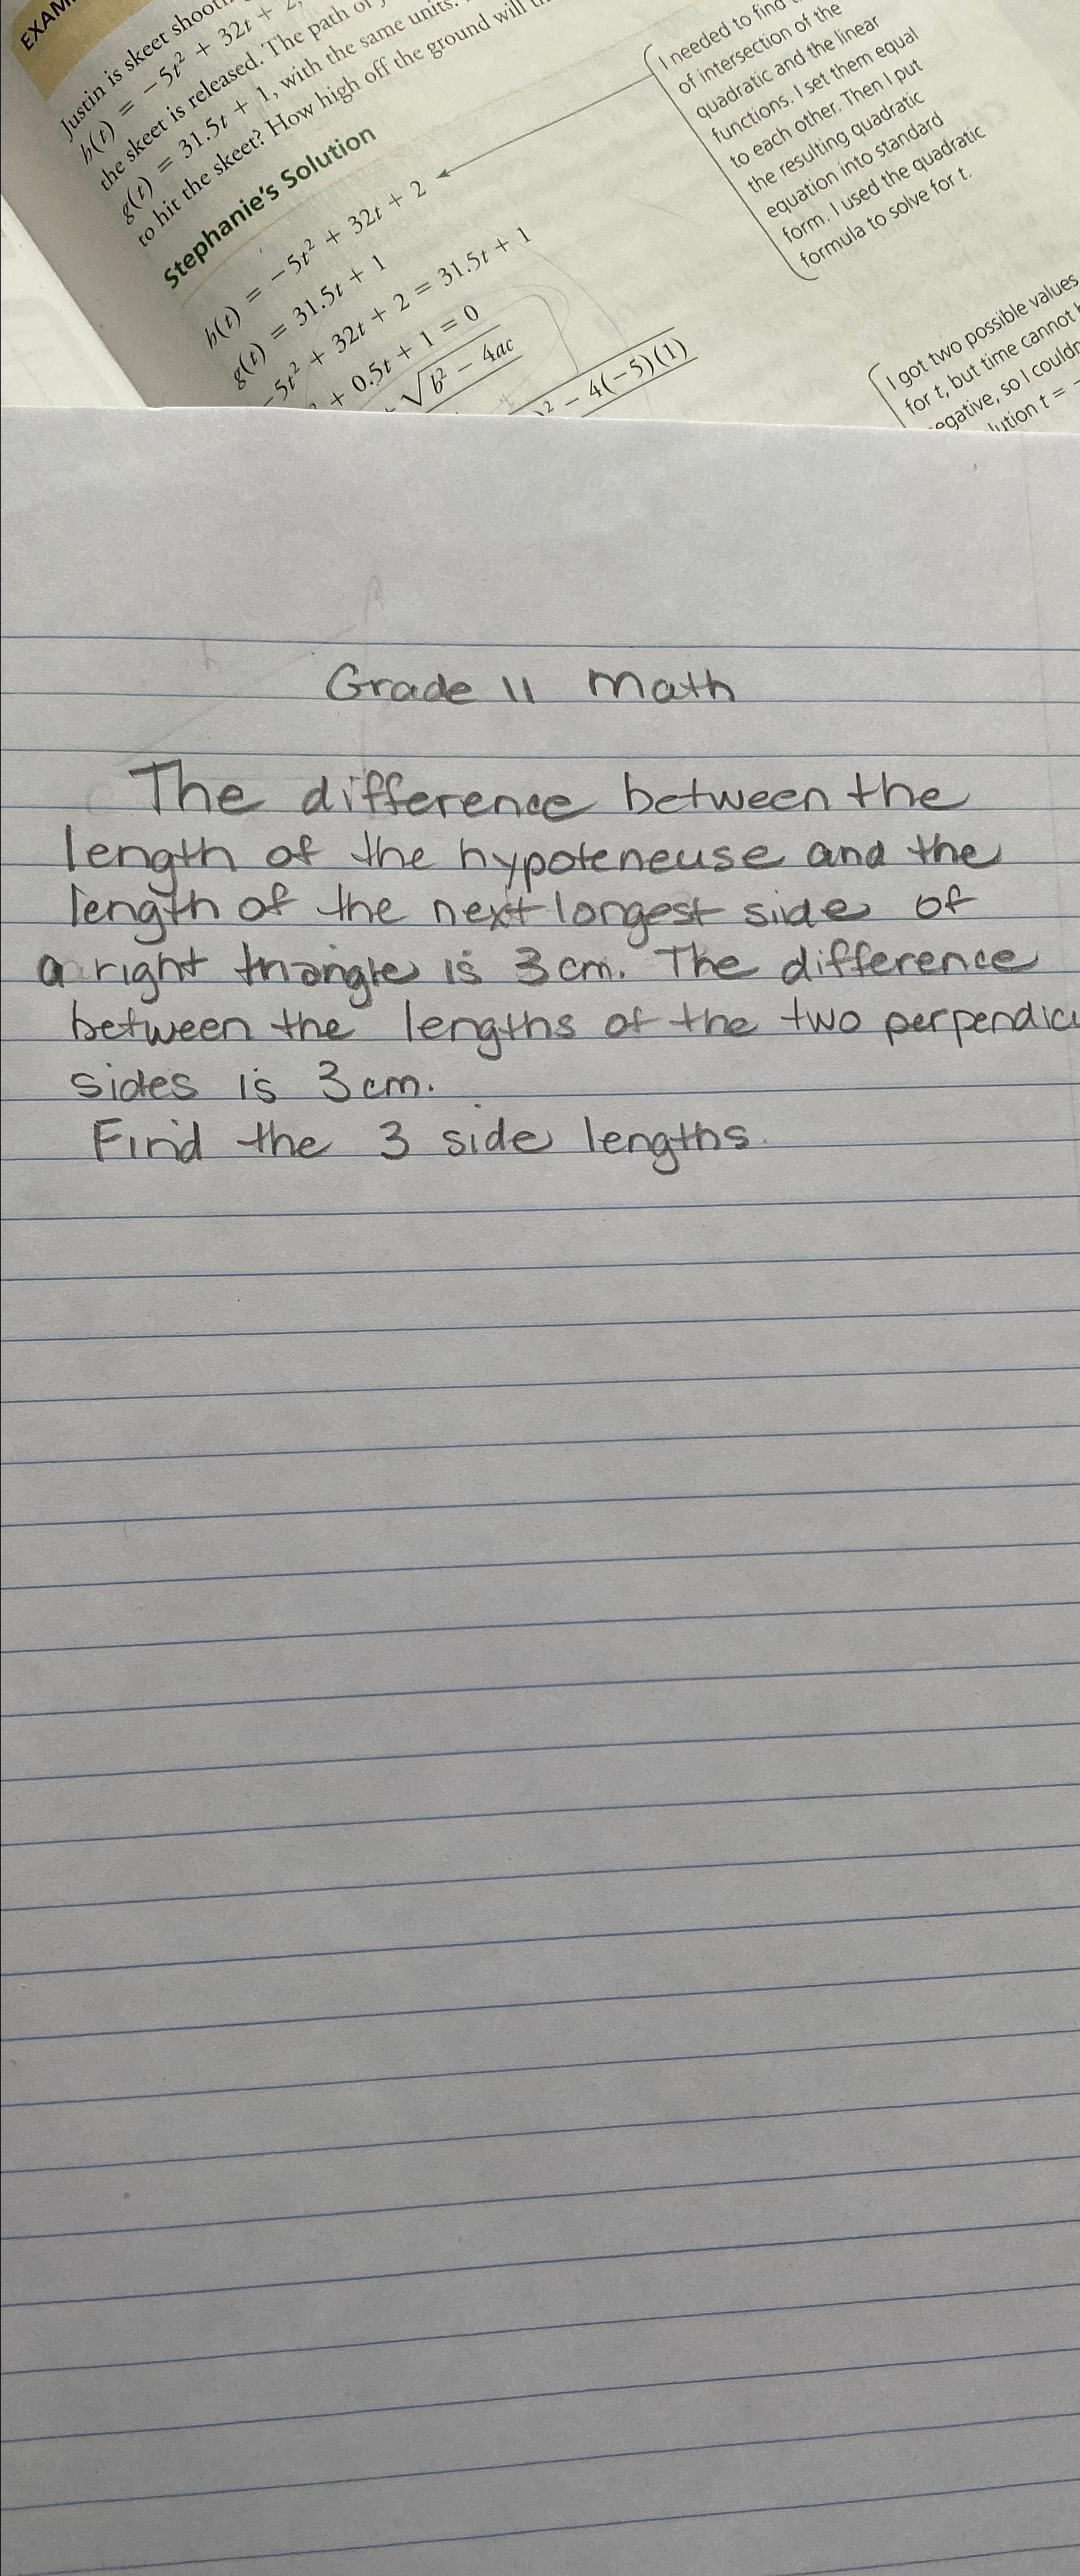 EXAM
Justin is skeet shootin
h(t) = −5t² + 32t + 2,
the skeet is released. The path of
g(t) = 31.5t + 1, with the same units.
to hit the skeet? How high off the ground will
Stephanie's Solution
h(t) = −5t² + 32t + 2
g(t) = 31.5t + 1
−5t² + 32t + 2 = 31.5t + 1
+ 0.5t + 1 = 0
√b² − 4ac
)² − 4(−5)(1)
I needed to find
of intersection of the
quadratic and the linear
functions. I set them equal
to each other. Then I put
the resulting quadratic
equation into standard
form. I used the quadratic
formula to solve for t.
I got two possible values
for t, but time cannot
egative, so I couldn
lution t = −
Grade 11 Math
The difference between the
length of the hypoteneuse and the
length of the next longest side of
a right triangle is 3 cm. The difference
between the lengths of the two perpendicu
sides is 3 cm.
Find the 3 side lengths.